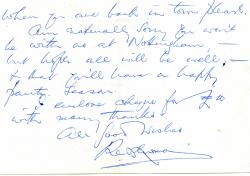 when you are back in town please.
Am naturally sorry you won't
be with us at Nottingham, —
but hope all will be well —
& that you'll have a happy
party season.
enclose cheque for £10
with many thanks.
All good wishes